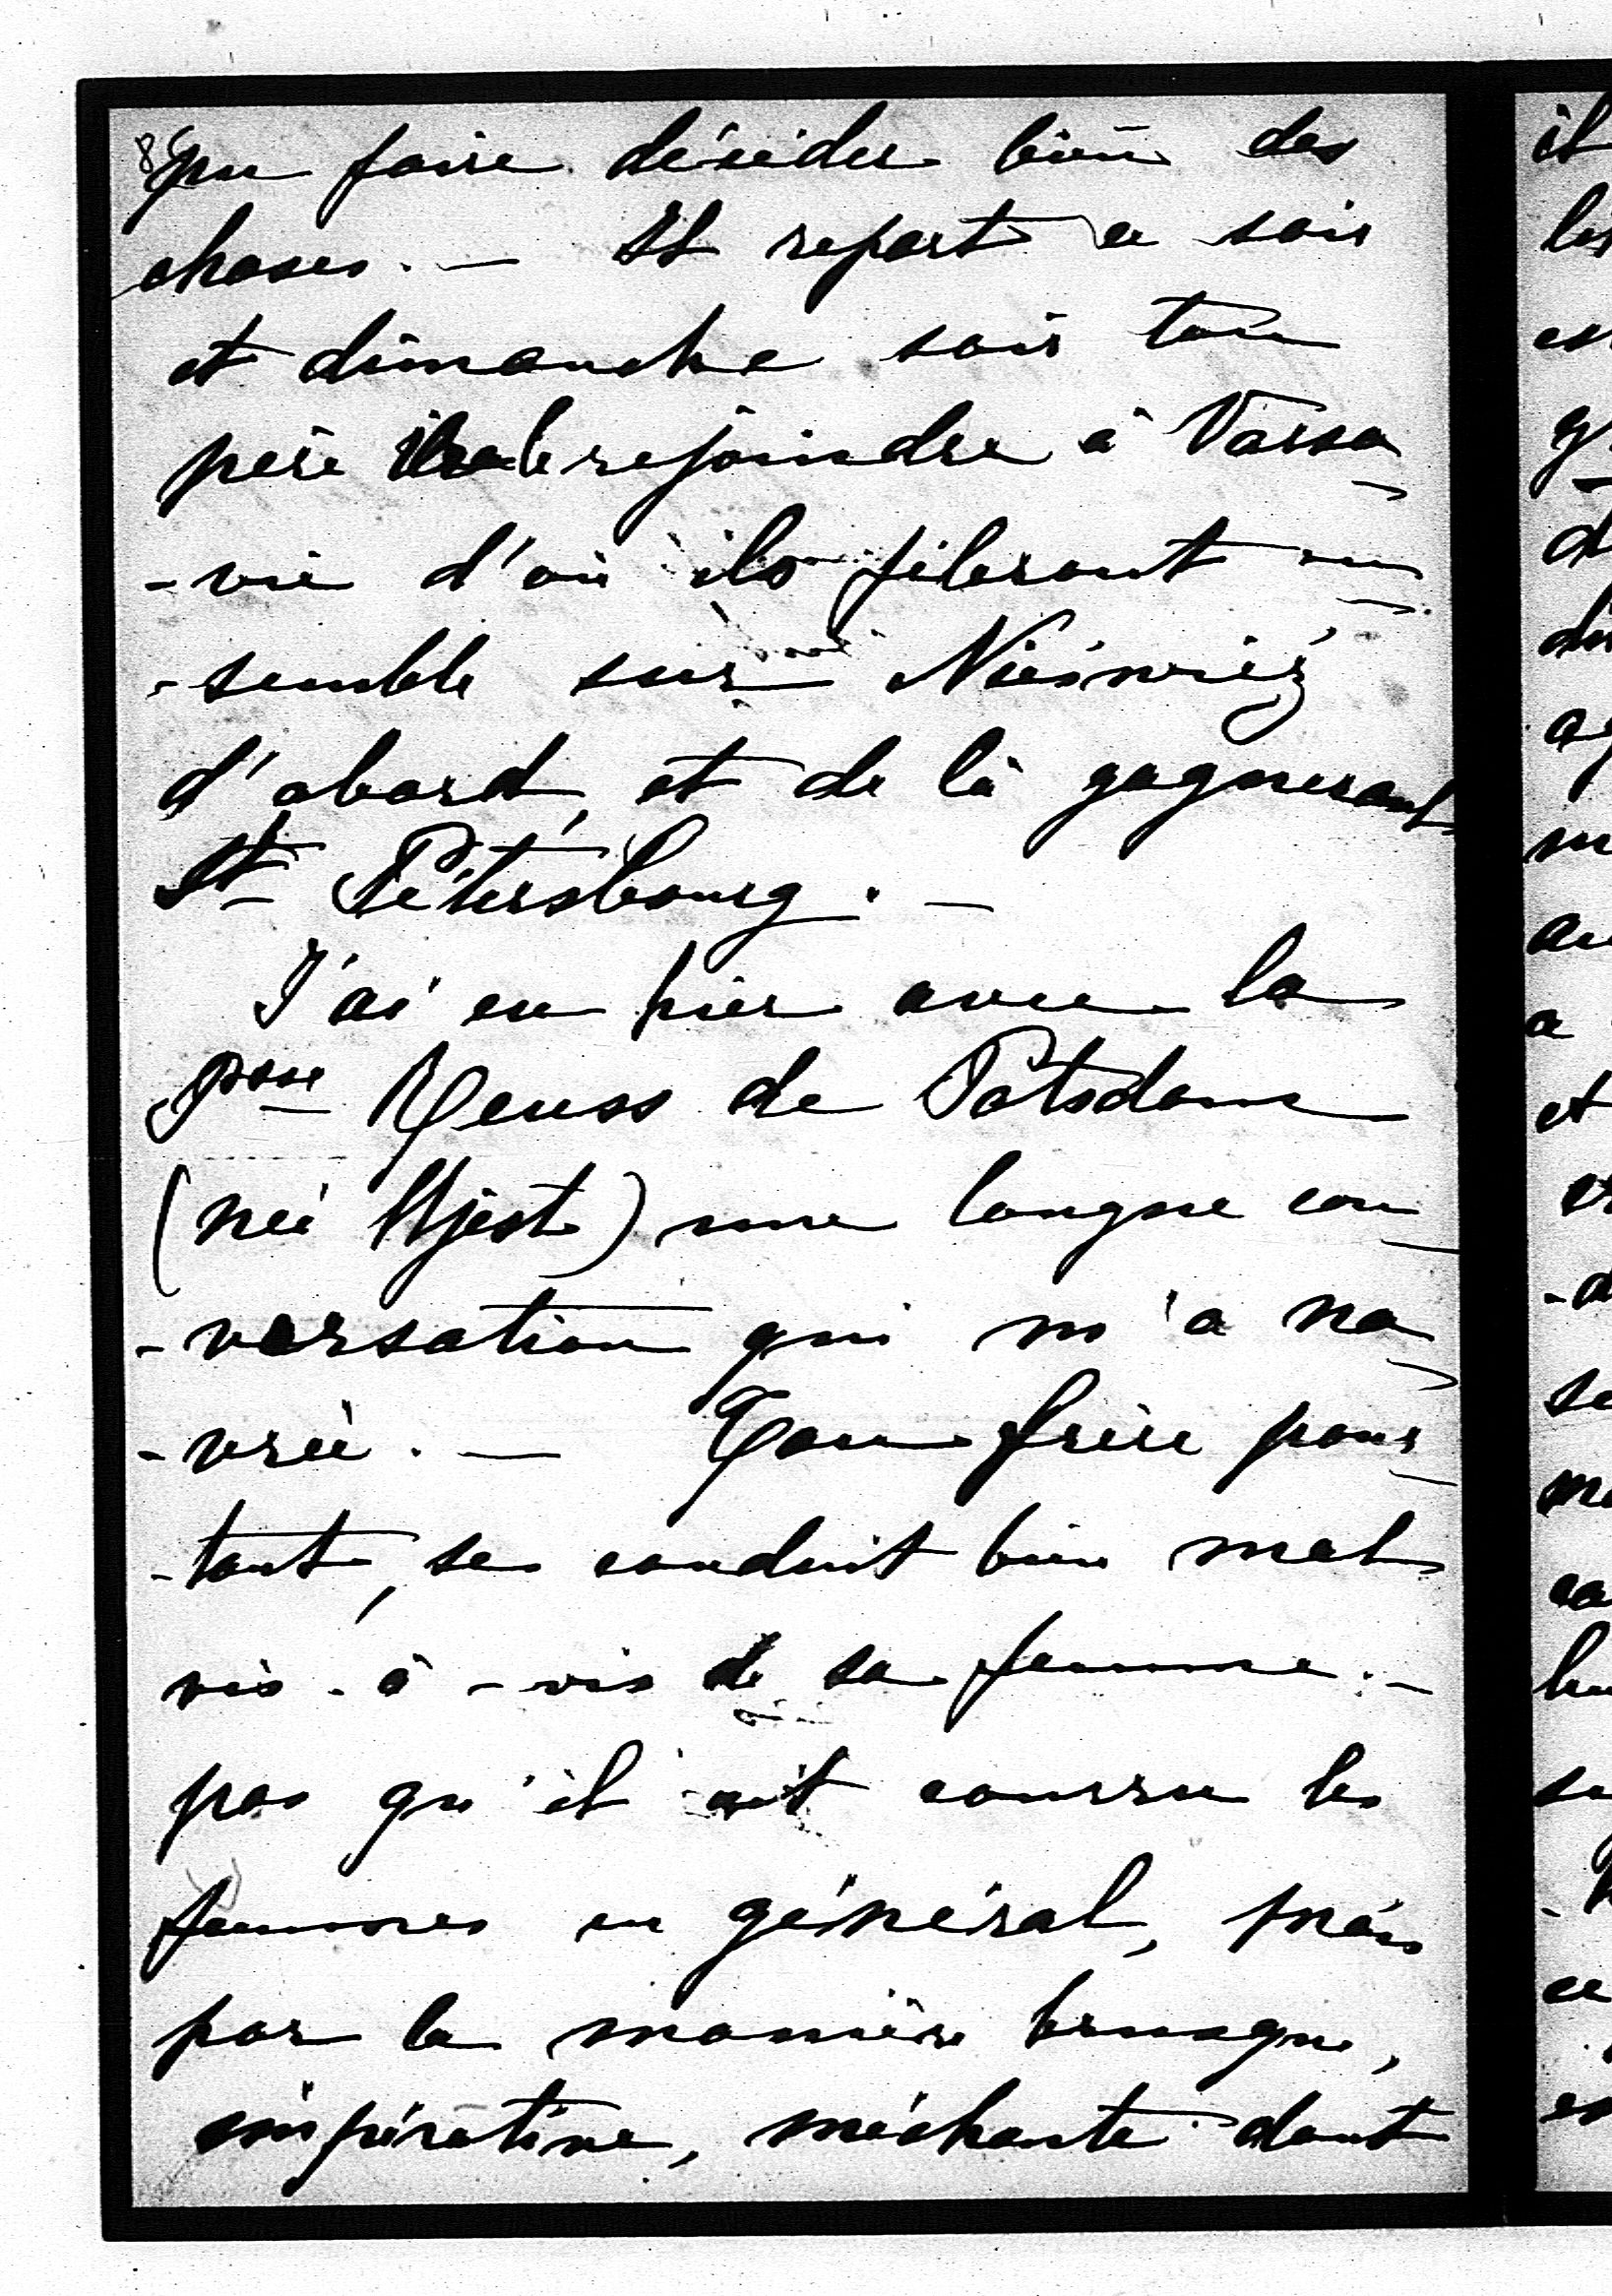 pu faire décider bien des
choses. — Il repart ce soir
et dimanche soir ton
père ira le rejoindre à Varso
-vie d'où ils fileront en
-semble sur Nieśwież
d'abord, et de là gagneront
St Pétersbourg. —
J'ai eu hier avec la
Psse Reuss de Potsdam
(née Ujest) une longue con
-versation qui m'a na
-vrée. — Ton frère pour
-tant, se conduit bien mal
vis-à-vis de sa femme. —
pas qu'il ait courru les
femmes en général, mais
par la manière brusque,
impérative, méchante dont